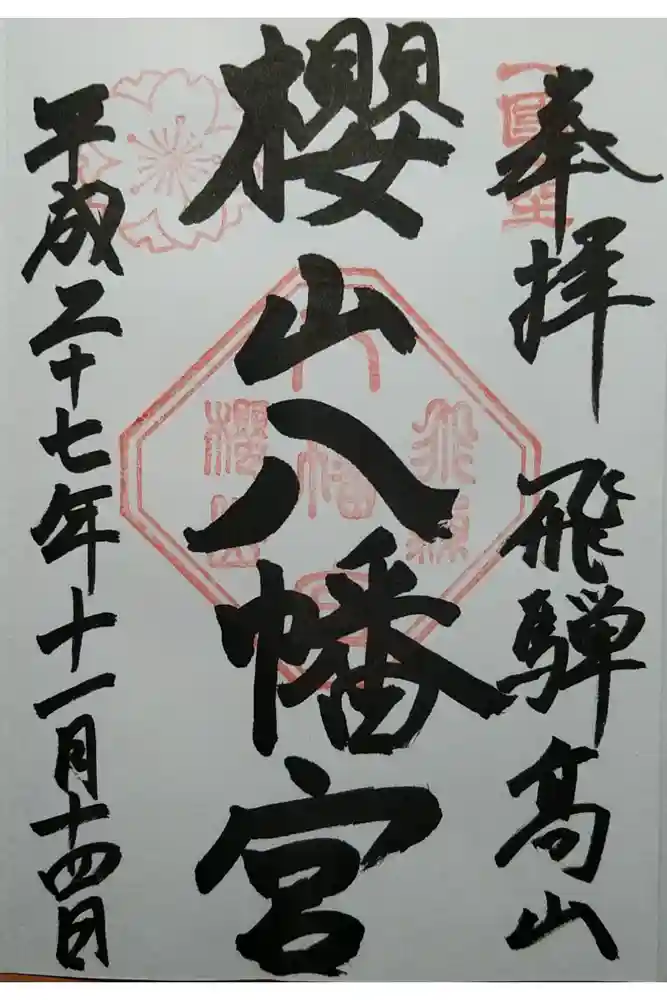 奉拝 飛騨高山
櫻山八幡宮
平成二十七年十一月十四日
飛騨
八幡宮
櫻山